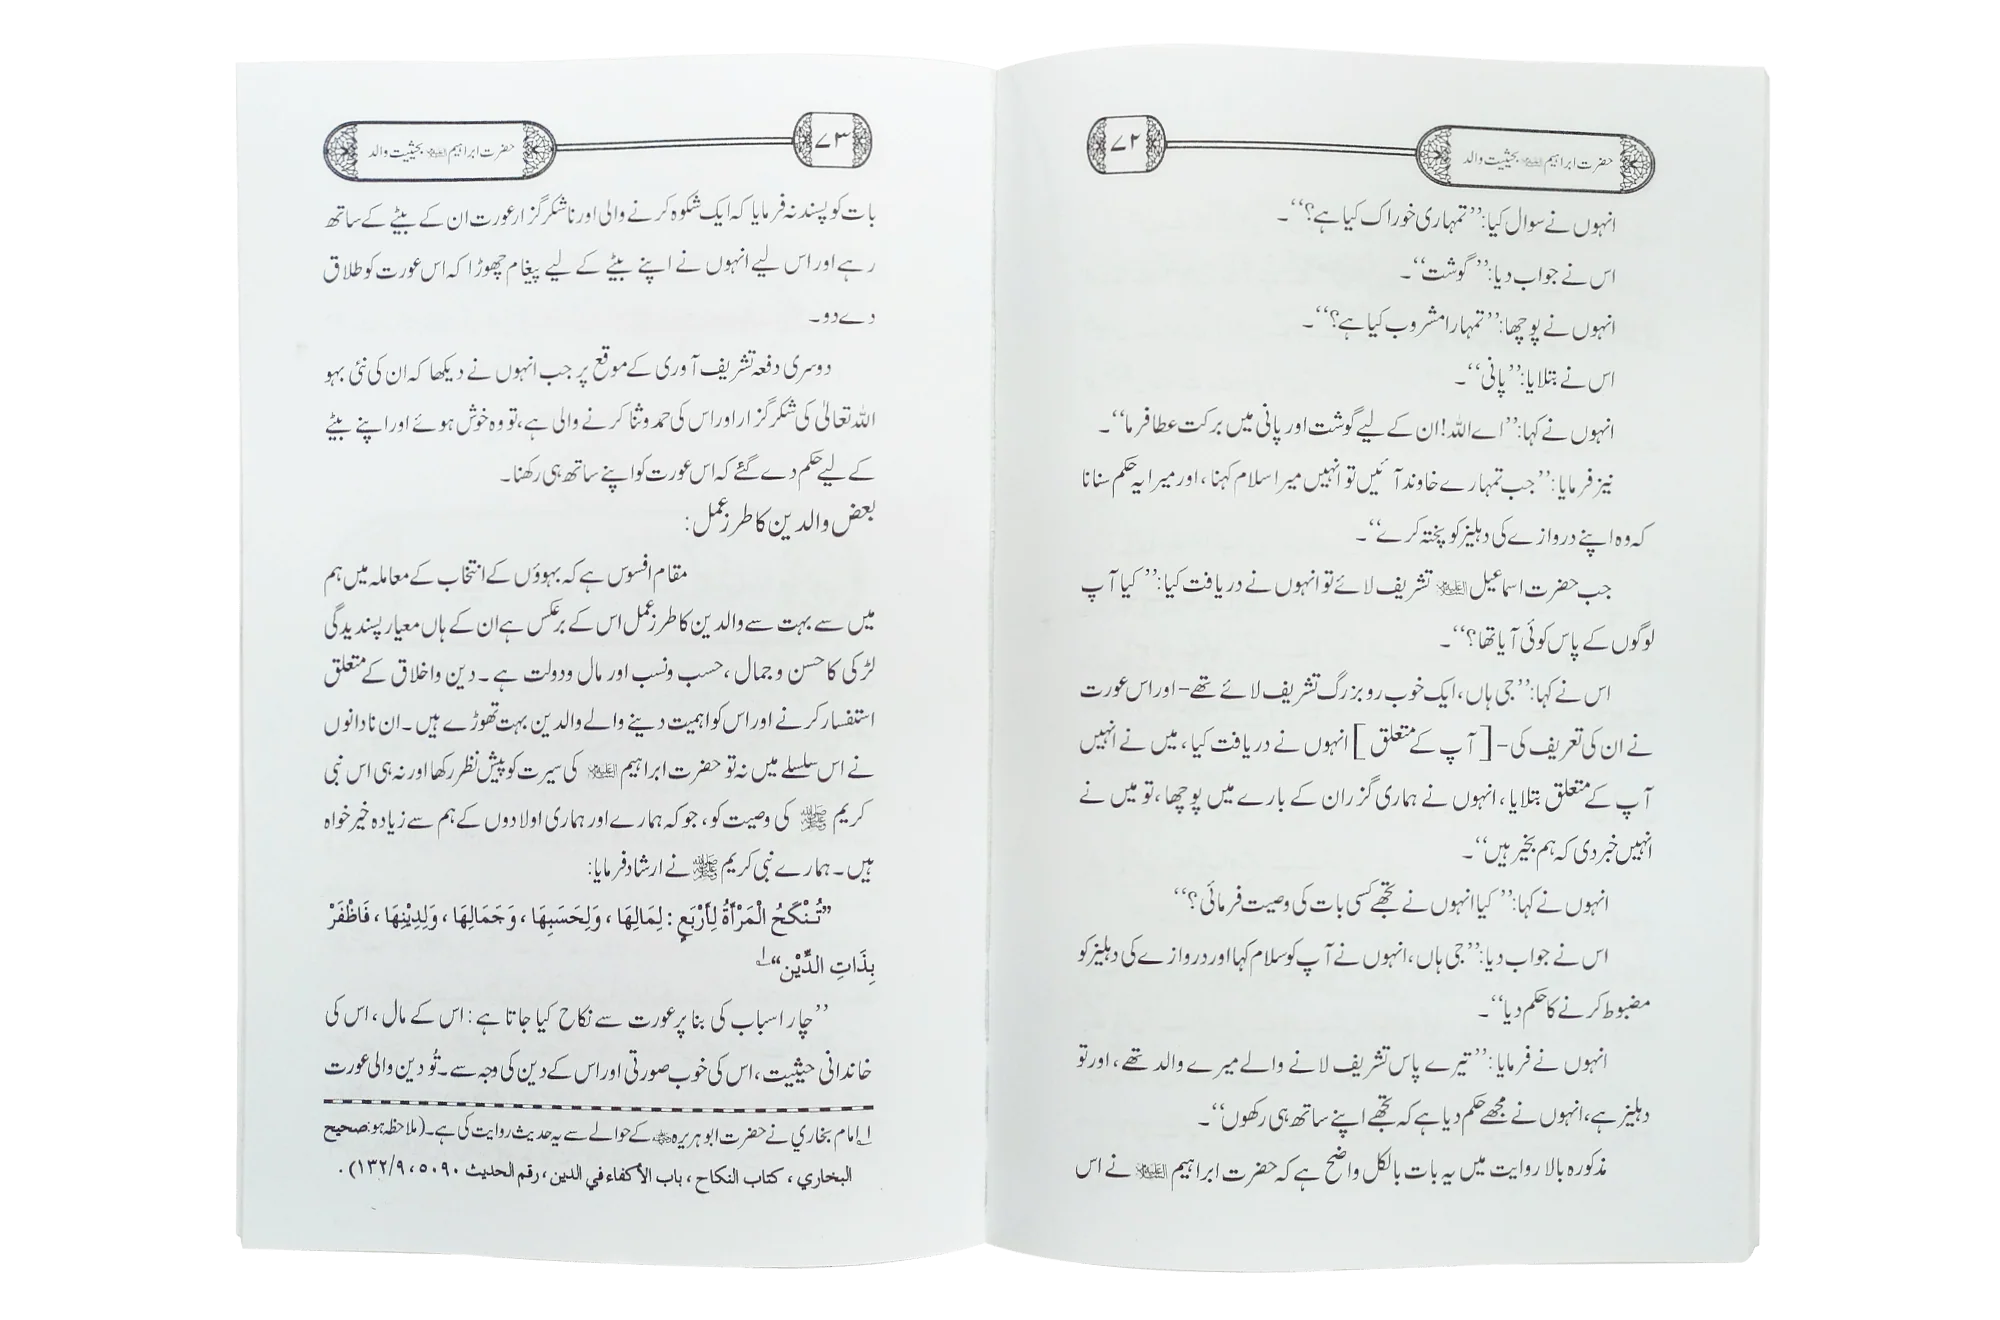 حضرت ابراہیم علیہ السلام بحیثیت والد
۷۲
انہوں نے سوال کیا: ’’تمہاری خوراک کیا ہے؟‘‘۔
اس نے جواب دیا: ’’گوشت‘‘۔
انہوں نے پوچھا: ’’تمہارا مشروب کیا ہے؟‘‘۔
اس نے بتلایا: ’’پانی‘‘۔
انہوں نے کہا: ’’اے اللہ! ان کے لیے گوشت اور پانی میں برکت عطا فرما‘‘۔
نیز فرمایا: ’’جب تمہارے خاوند آئیں تو انہیں میرا سلام کہنا، اور میرا یہ حکم سنانا
کہ وہ اپنے دروازے کی دہلیز کو پختہ کرے‘‘۔
جب حضرت اسماعیل علیہ السلام تشریف لائے تو انہوں نے دریافت کیا: ’’کیا آپ
لوگوں کے پاس کوئی آیا تھا؟‘‘۔
اس نے کہا: ’’جی ہاں، ایک خوب رو بزرگ تشریف لائے تھے- اور اس عورت
نے ان کی تعریف کی- [آپ کے متعلق] انہوں نے دریافت کیا، میں نے انہیں
آپ کے متعلق بتلایا، انہوں نے ہماری گزران کے بارے میں پوچھا، تو میں نے
انہیں خبر دی کہ ہم بخیر ہیں‘‘۔
انہوں نے کہا: ’’کیا انہوں نے تجھے کسی بات کی وصیت فرمائی؟‘‘
اس نے جواب دیا: ’’جی ہاں، انہوں نے آپ کو سلام کہا اور دروازے کی دہلیز کو
مضبوط کرنے کا حکم دیا‘‘۔
انہوں نے فرمایا: ’’تیرے پاس تشریف لانے والے میرے والد تھے، اور تو
دہلیز ہے، انہوں نے مجھے حکم دیا ہے کہ تجھے اپنے ساتھ ہی رکھوں‘‘۔
مذکورہ بالا روایت میں یہ بات بالکل واضح ہے کہ حضرت ابراہیم علیہ السلام نے اس
۷۳
حضرت ابراہیم علیہ السلام بحیثیت والد
بات کو پسند نہ فرمایا کہ ایک شکوہ کرنے والی اور ناشکرگزار عورت ان کے بیٹے کے ساتھ
رہے اور اس لیے انہوں نے اپنے بیٹے کے لیے پیغام چھوڑا کہ اس عورت کو طلاق
دے دو۔
دوسری دفعہ تشریف آوری کے موقع پر جب انہوں نے دیکھا کہ ان کی نئی بہو
اللہ تعالیٰ کی شکرگزار اور اس کی حمد و ثنا کرنے والی ہے، تو وہ خوش ہوئے اور اپنے بیٹے
کے لیے حکم دے گئے کہ اس عورت کو اپنے ساتھ ہی رکھنا۔
بعض والدین کا طرزِ عمل:
مقام افسوس ہے کہ بہوؤں کے انتخاب کے معاملہ میں ہم
میں سے بہت سے والدین کا طرزِ عمل اس کے برعکس ہے ان کے ہاں معیار پسندیدگی
لڑکی کا حسن و جمال، حسب و نسب اور مال و دولت ہے۔ دین و اخلاق کے متعلق
استفسار کرنے اور اس کو اہمیت دینے والے والدین بہت تھوڑے ہیں۔ ان نادانوں
نے اس سلسلے میں نہ تو حضرت ابراہیم علیہ السلام کی سیرت کو پیش نظر رکھا اور نہ ہی اس نبی
کریم ﷺ کی وصیت کو، جو کہ ہمارے اور ہماری اولادوں کے ہم سے زیادہ خیر خواہ
ہیں۔ ہمارے نبی کریم ﷺ نے ارشاد فرمایا:
’’تُنْكَحُ الْمَرْأَةُ لِأَرْبَعٍ: لِمَالِهَا، وَلِحَسَبِهَا، وَجَمَالِهَا، وَلِدِيْنِهَا، فَاظْفَرْ
بِذَاتِ الدِّيْن‘‘ ۱؎
’’چار اسباب کی بنا پر عورت سے نکاح کیا جاتا ہے: اس کے مال، اس کی
خاندانی حیثیت، اس کی خوب صورتی اور اس کے دین کی وجہ سے۔ تُو دین والی عورت
۱؎ امام بخاري نے حضرت ابو ہریرہ رضی اللہ عنہ کے حوالے سے یہ حدیث روایت کی ہے۔ (ملاحظہ ہو: صحيح
البخاري، كتاب النكاح، باب الأكفاء في الدين، رقم الحديث ۵۰۹۰، ۱۳۲/۹).